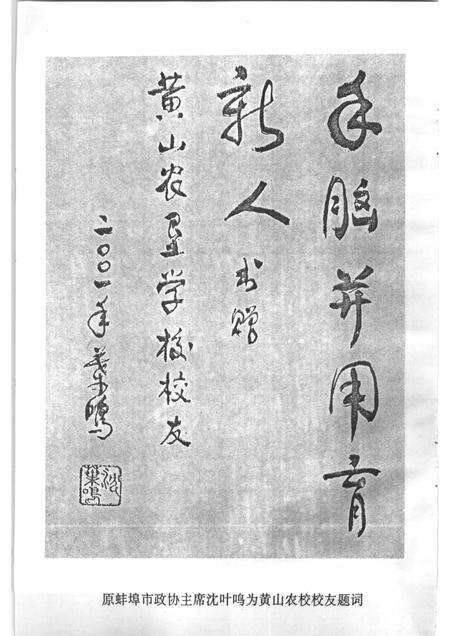 手脑并用育
新人 书赠
黄山农垦学校校友
二〇〇一年 葉鸣
沈葉鸣
原蚌埠市政协主席沈叶鸣为黄山农校校友题词